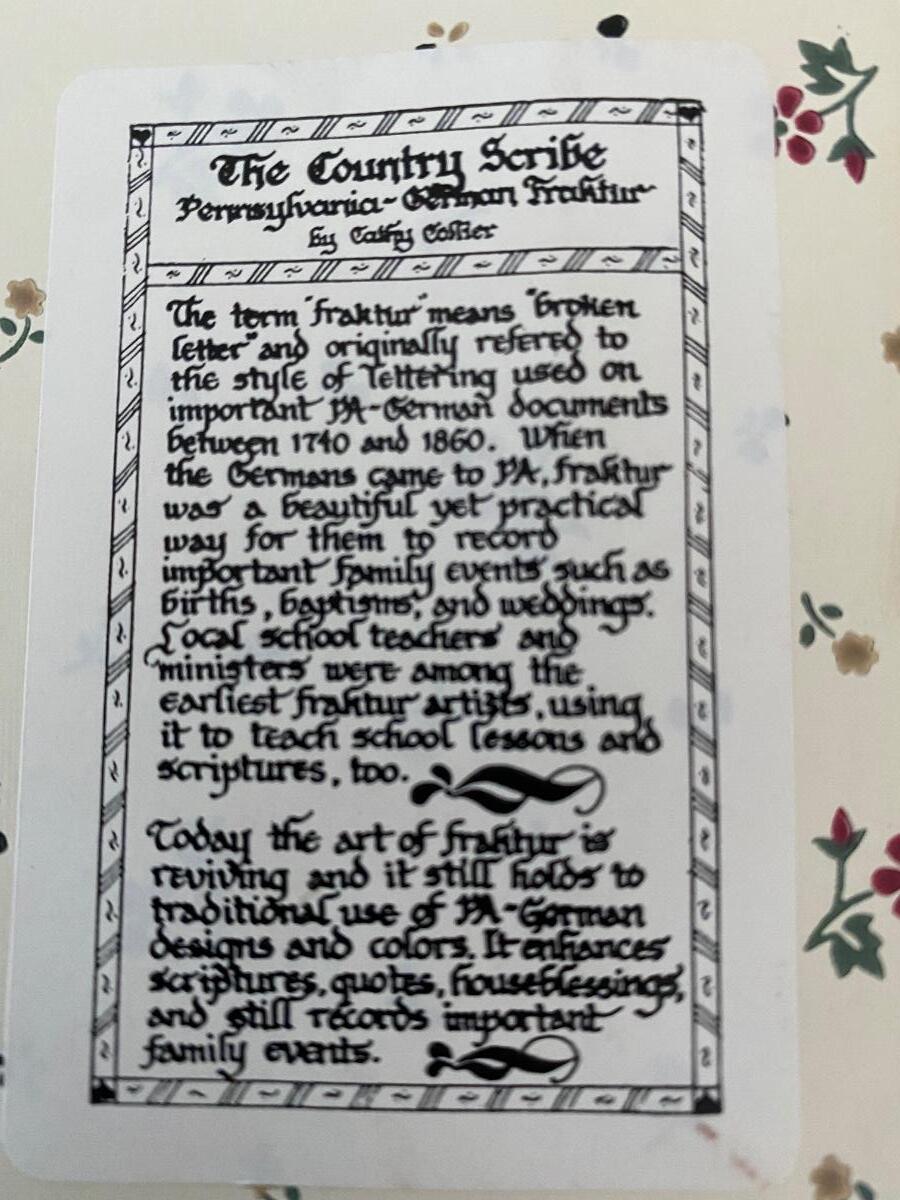 The Country Scribe
Pennsylvania-German Fraktur
by Cathy Collier
The term "fraktur" means "broken
letter" and originally refered to
the style of lettering used on
important PA-German documents
between 1740 and 1860. When
the Germans came to PA, fraktur
was a beautiful yet practical
way for them to record
important family events such as
births, baptisms, and weddings.
Local school teachers and
ministers were among the
earliest fraktur artists, using
it to teach school lessons and
scriptures, too.
Today the art of fraktur is
reviving and it still holds to
traditional use of PA-German
designs and colors. It enhances
scriptures, quotes, houseblessings,
and still records important
family events.